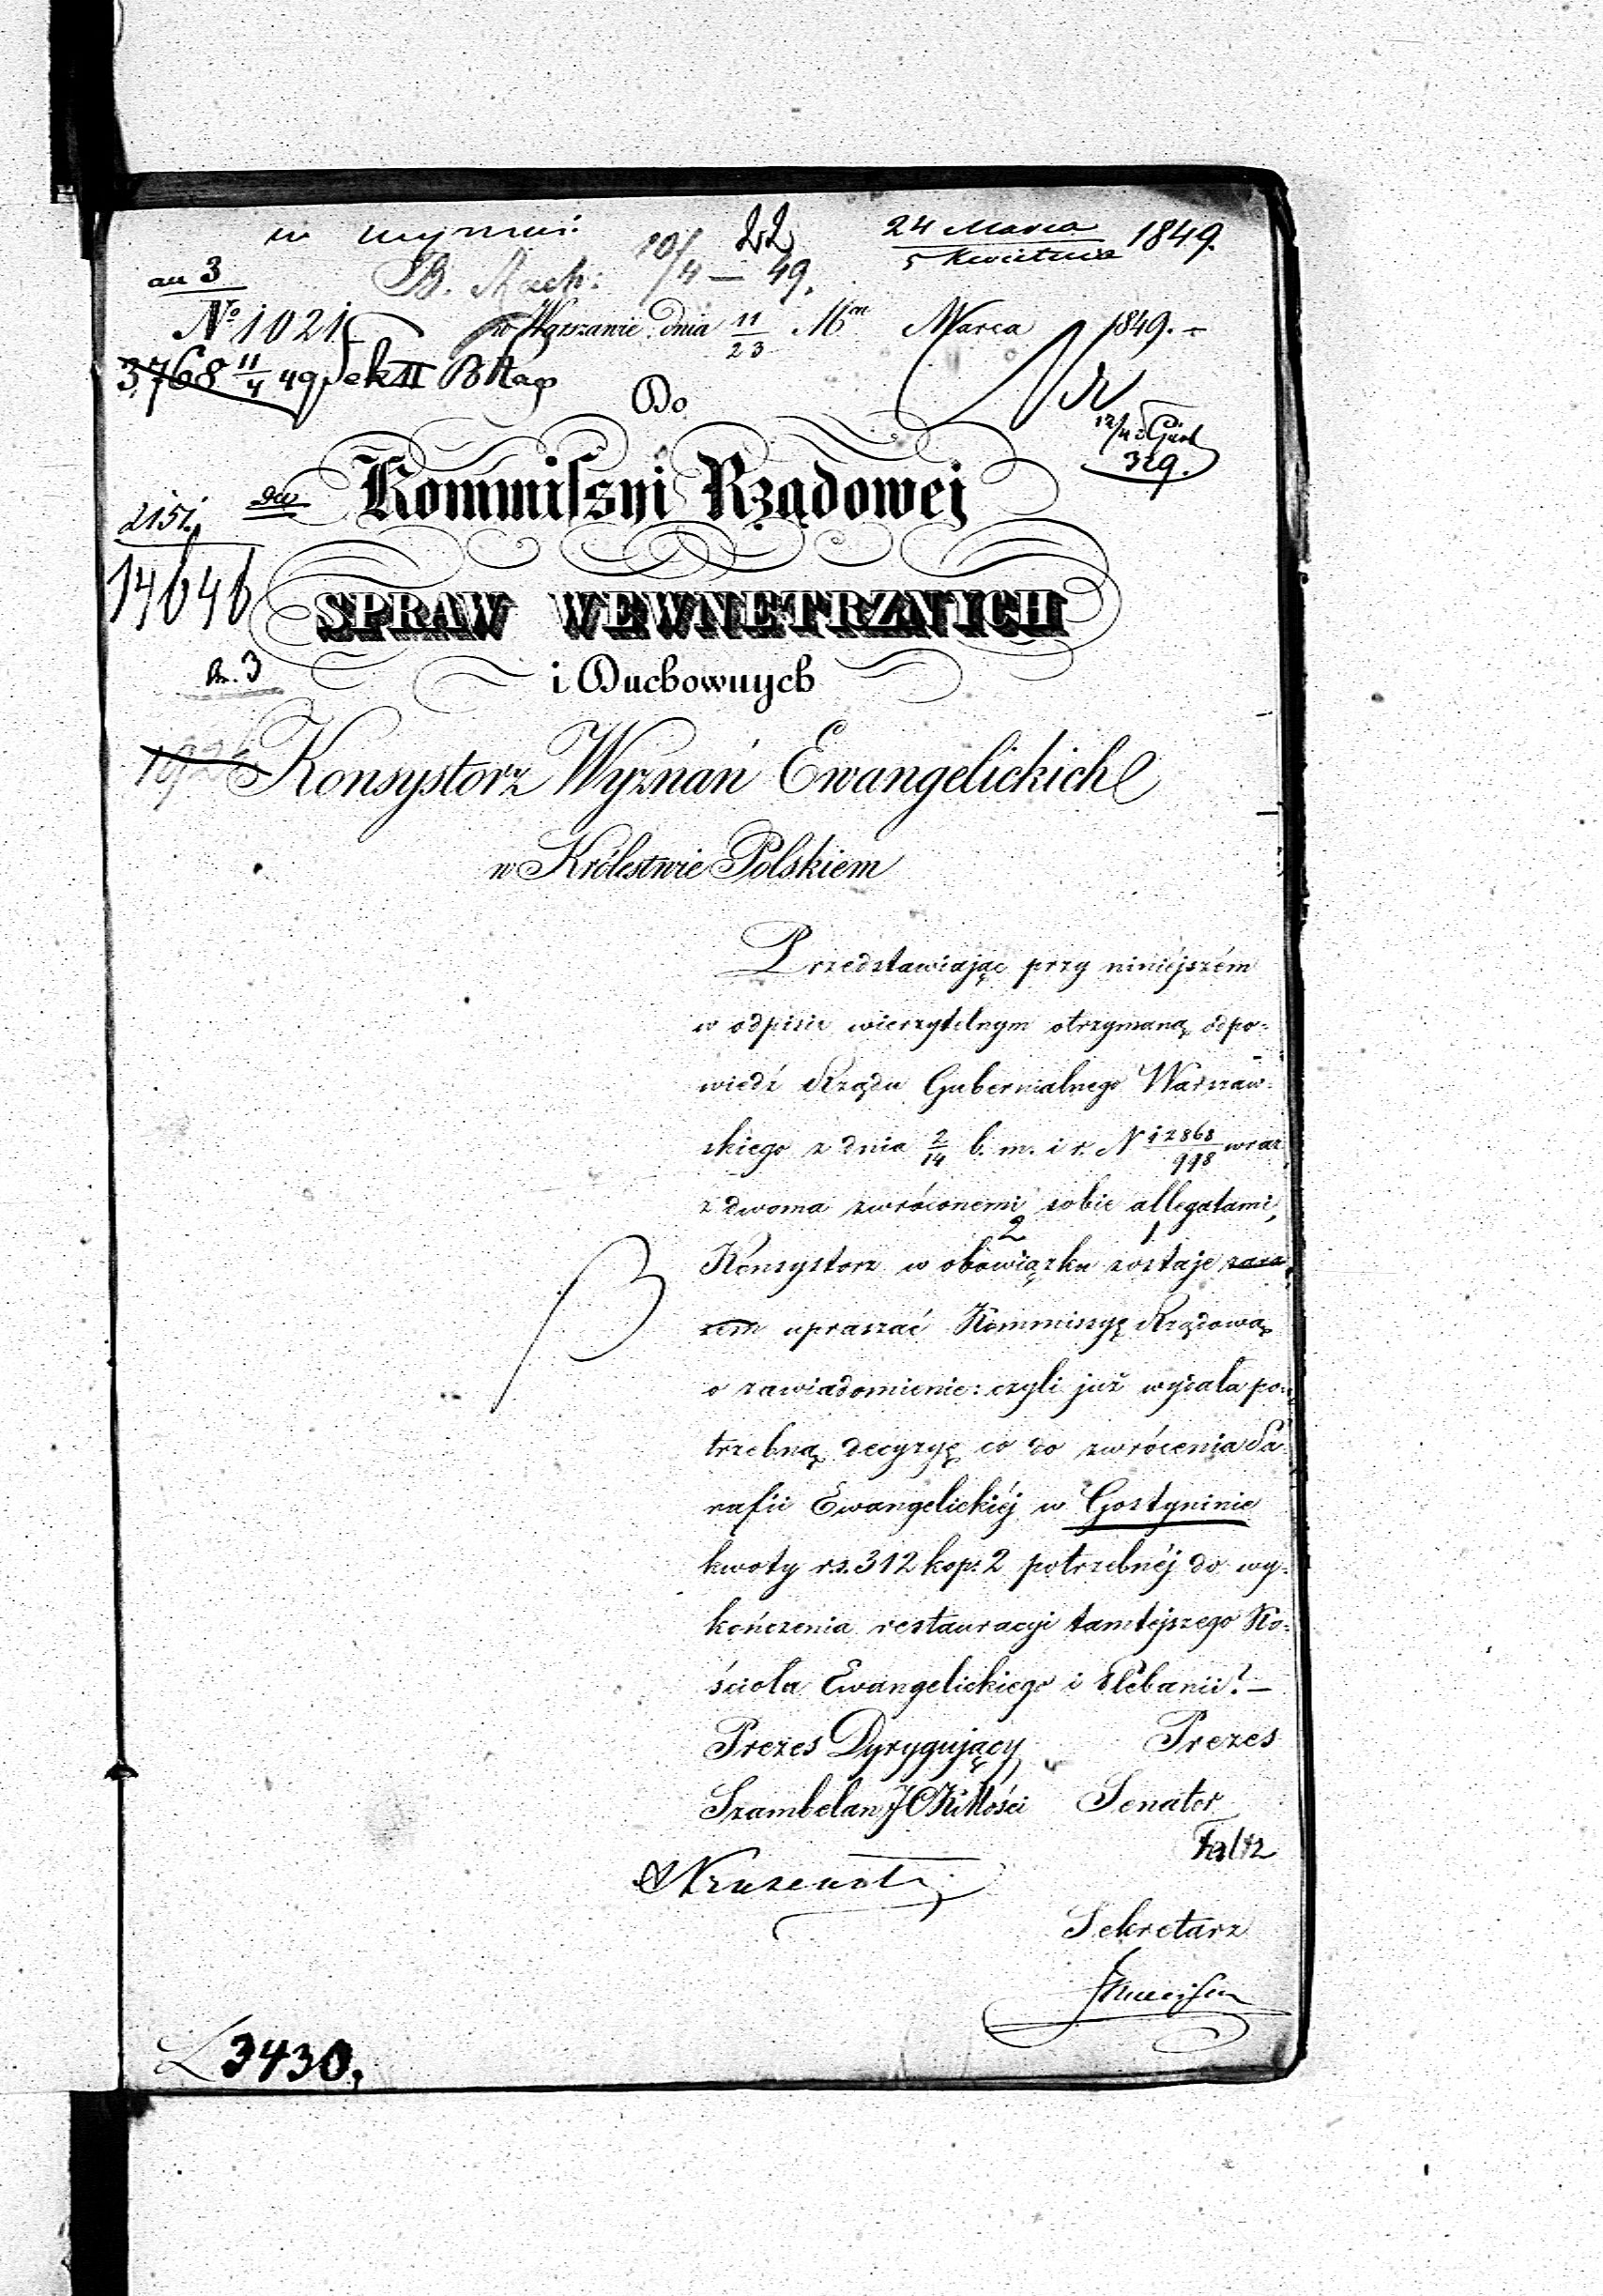 22
24 Marca 1849.
5 Kwietnia
10/4 — 49.
an 3
№ 1021
w Warszawie dnia 11/23 Mca Marca 1849. —
3768 11/4 49 Sek II
Do
329.
Kommissyi Rządowej
2151.
14646
SPRAW WEWNĘTRZNYCH
3
i Duchownych
Konsystorz Wyznań Ewangelickich
w Królestwie Polskiem
Przedstawiając przy niniéjszém
w odpisie wierzytelnym otrzymaną odpo-
wiedź Rządu Gubernialnego Warszaw-
skiego z dnia 2/14 b. m. i r. N 12868/998 wraz
z dwoma zwróconemi sobie allegatami,
2 1
Konsystorz w obowiązku zostaje zara
zem upraszać Kommissyę Rządową
o zawiadomienie: czyli już wydała po-
trzebną decyzyę co do zwrócenia Pa-
rafii Ewangelickiéj w Gostyninie
kwoty r.s. 312 kop. 2 potrzebnéj do wy-
kończenia restauracyi tamtéjszego Ko-
ścioła Ewangelickiego i Plebanii? —
Prezes Dyrygujący Prezes
Szambelan JCKMości Senator
Faltz
Sekretarz
3430.